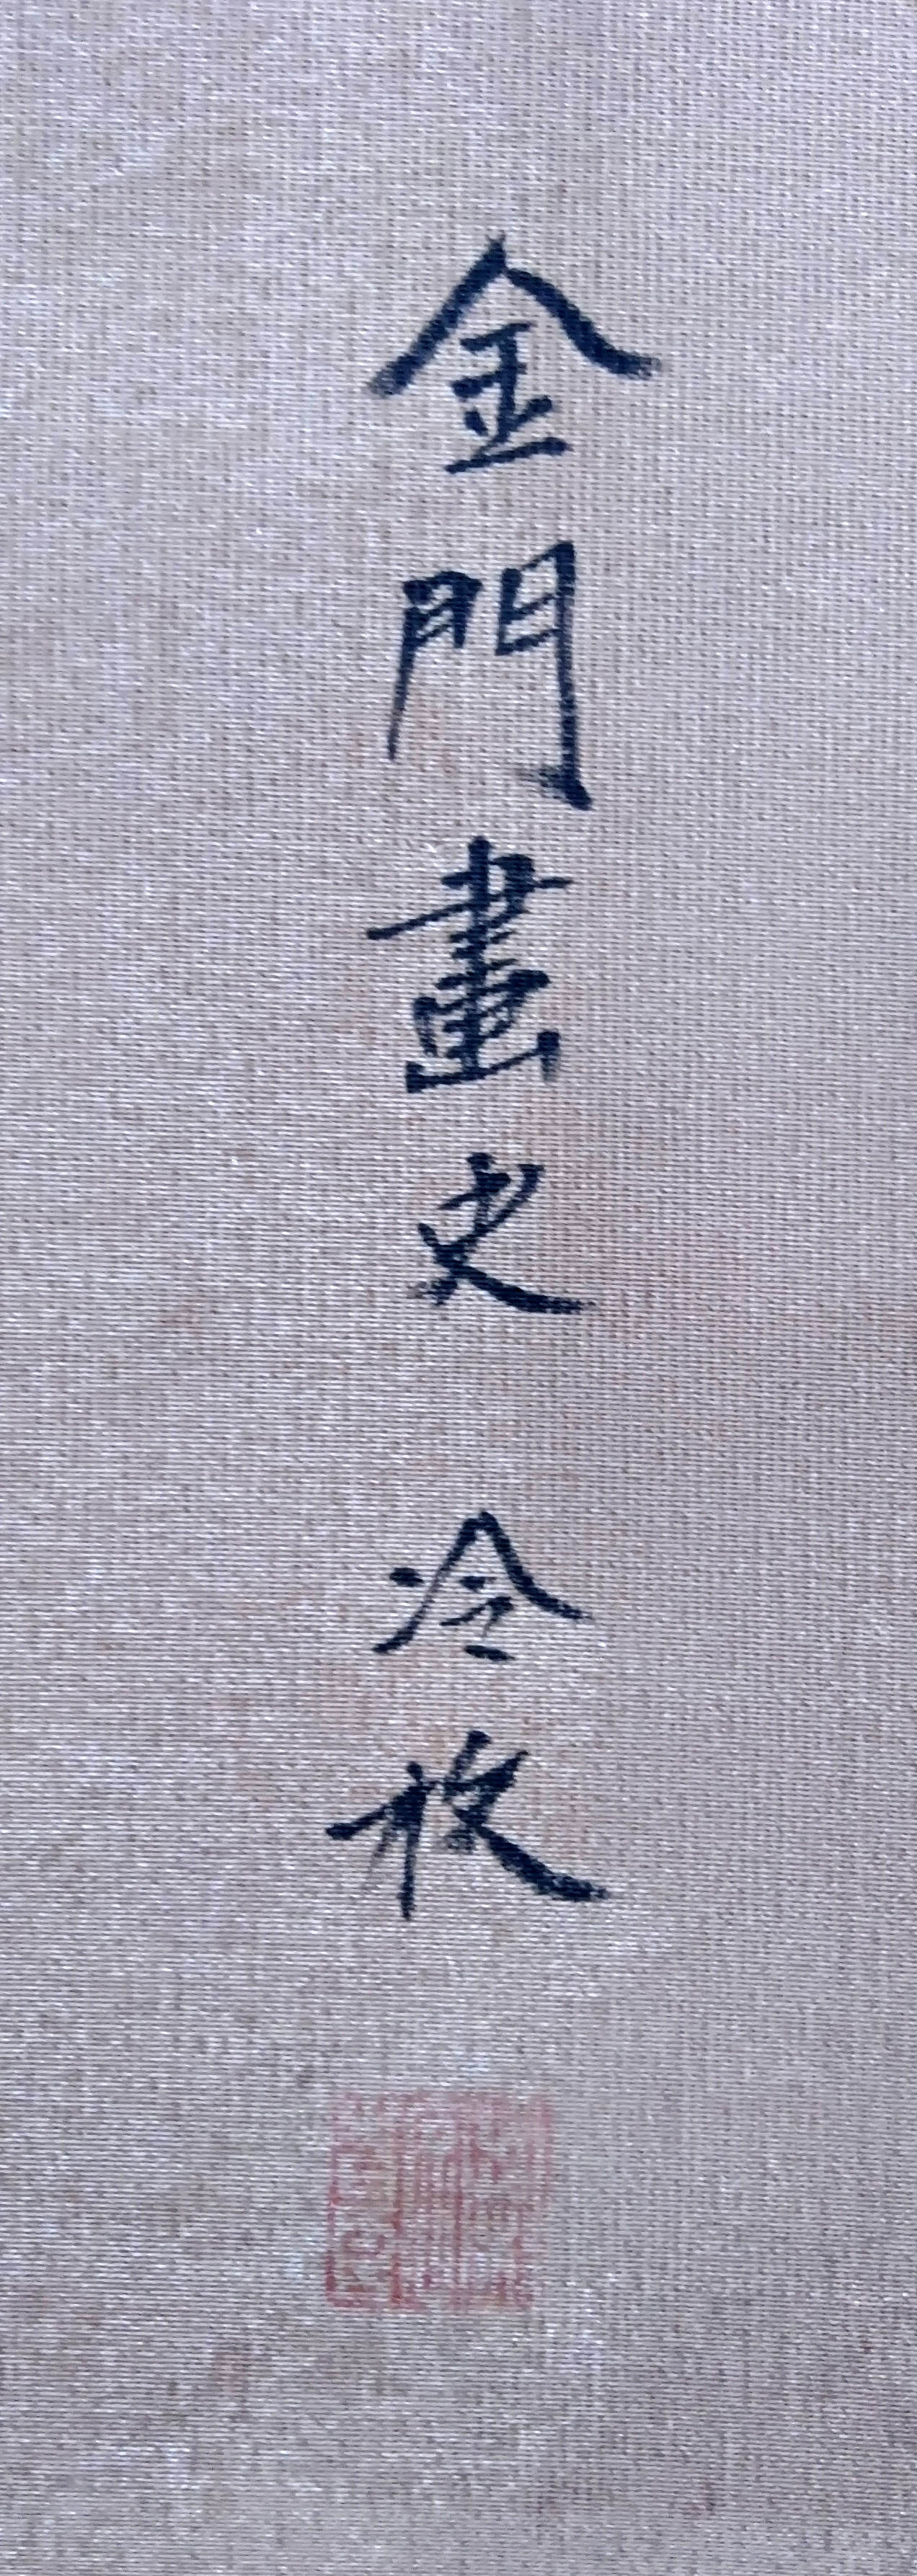 金門畫史冷枚